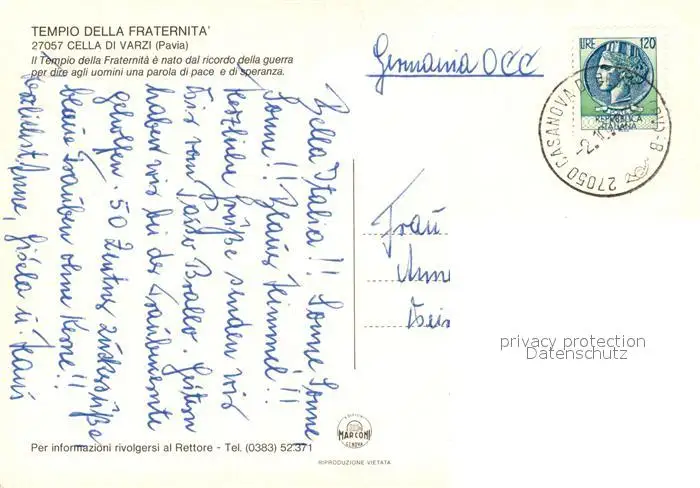 TEMPIO DELLA FRATERNITA'
27057 CELLA DI VARZI (Pavia)
Il Tempio della Fraternità è nato dal ricordo della guerra
per dire agli uomini una parola di pace e di speranza.
Germania OCC
LIRE 120
REPUBBLICA
ITALIANA
27050 CASANOVA D
Bella Italia!! Sonne Sonne
Sonne!! Blauer Himmel!!
Herzliche Grüße senden wir
Dir vom Passo Brallo. Gestern
haben wir bei der Traubenernte
geholfen. 50 Zentner zuckersüße
blaue Trauben ohne Kerne!!
Herzlichst Anne, Gisela u. Hans
Frau
Anne
privacy protection
Datenschutz
EDIZIONI
MARCONI
GENOVA
Per informazioni rivolgersi al Rettore - Tel. (0383) 52.371
RIPRODUZIONE VIETATA